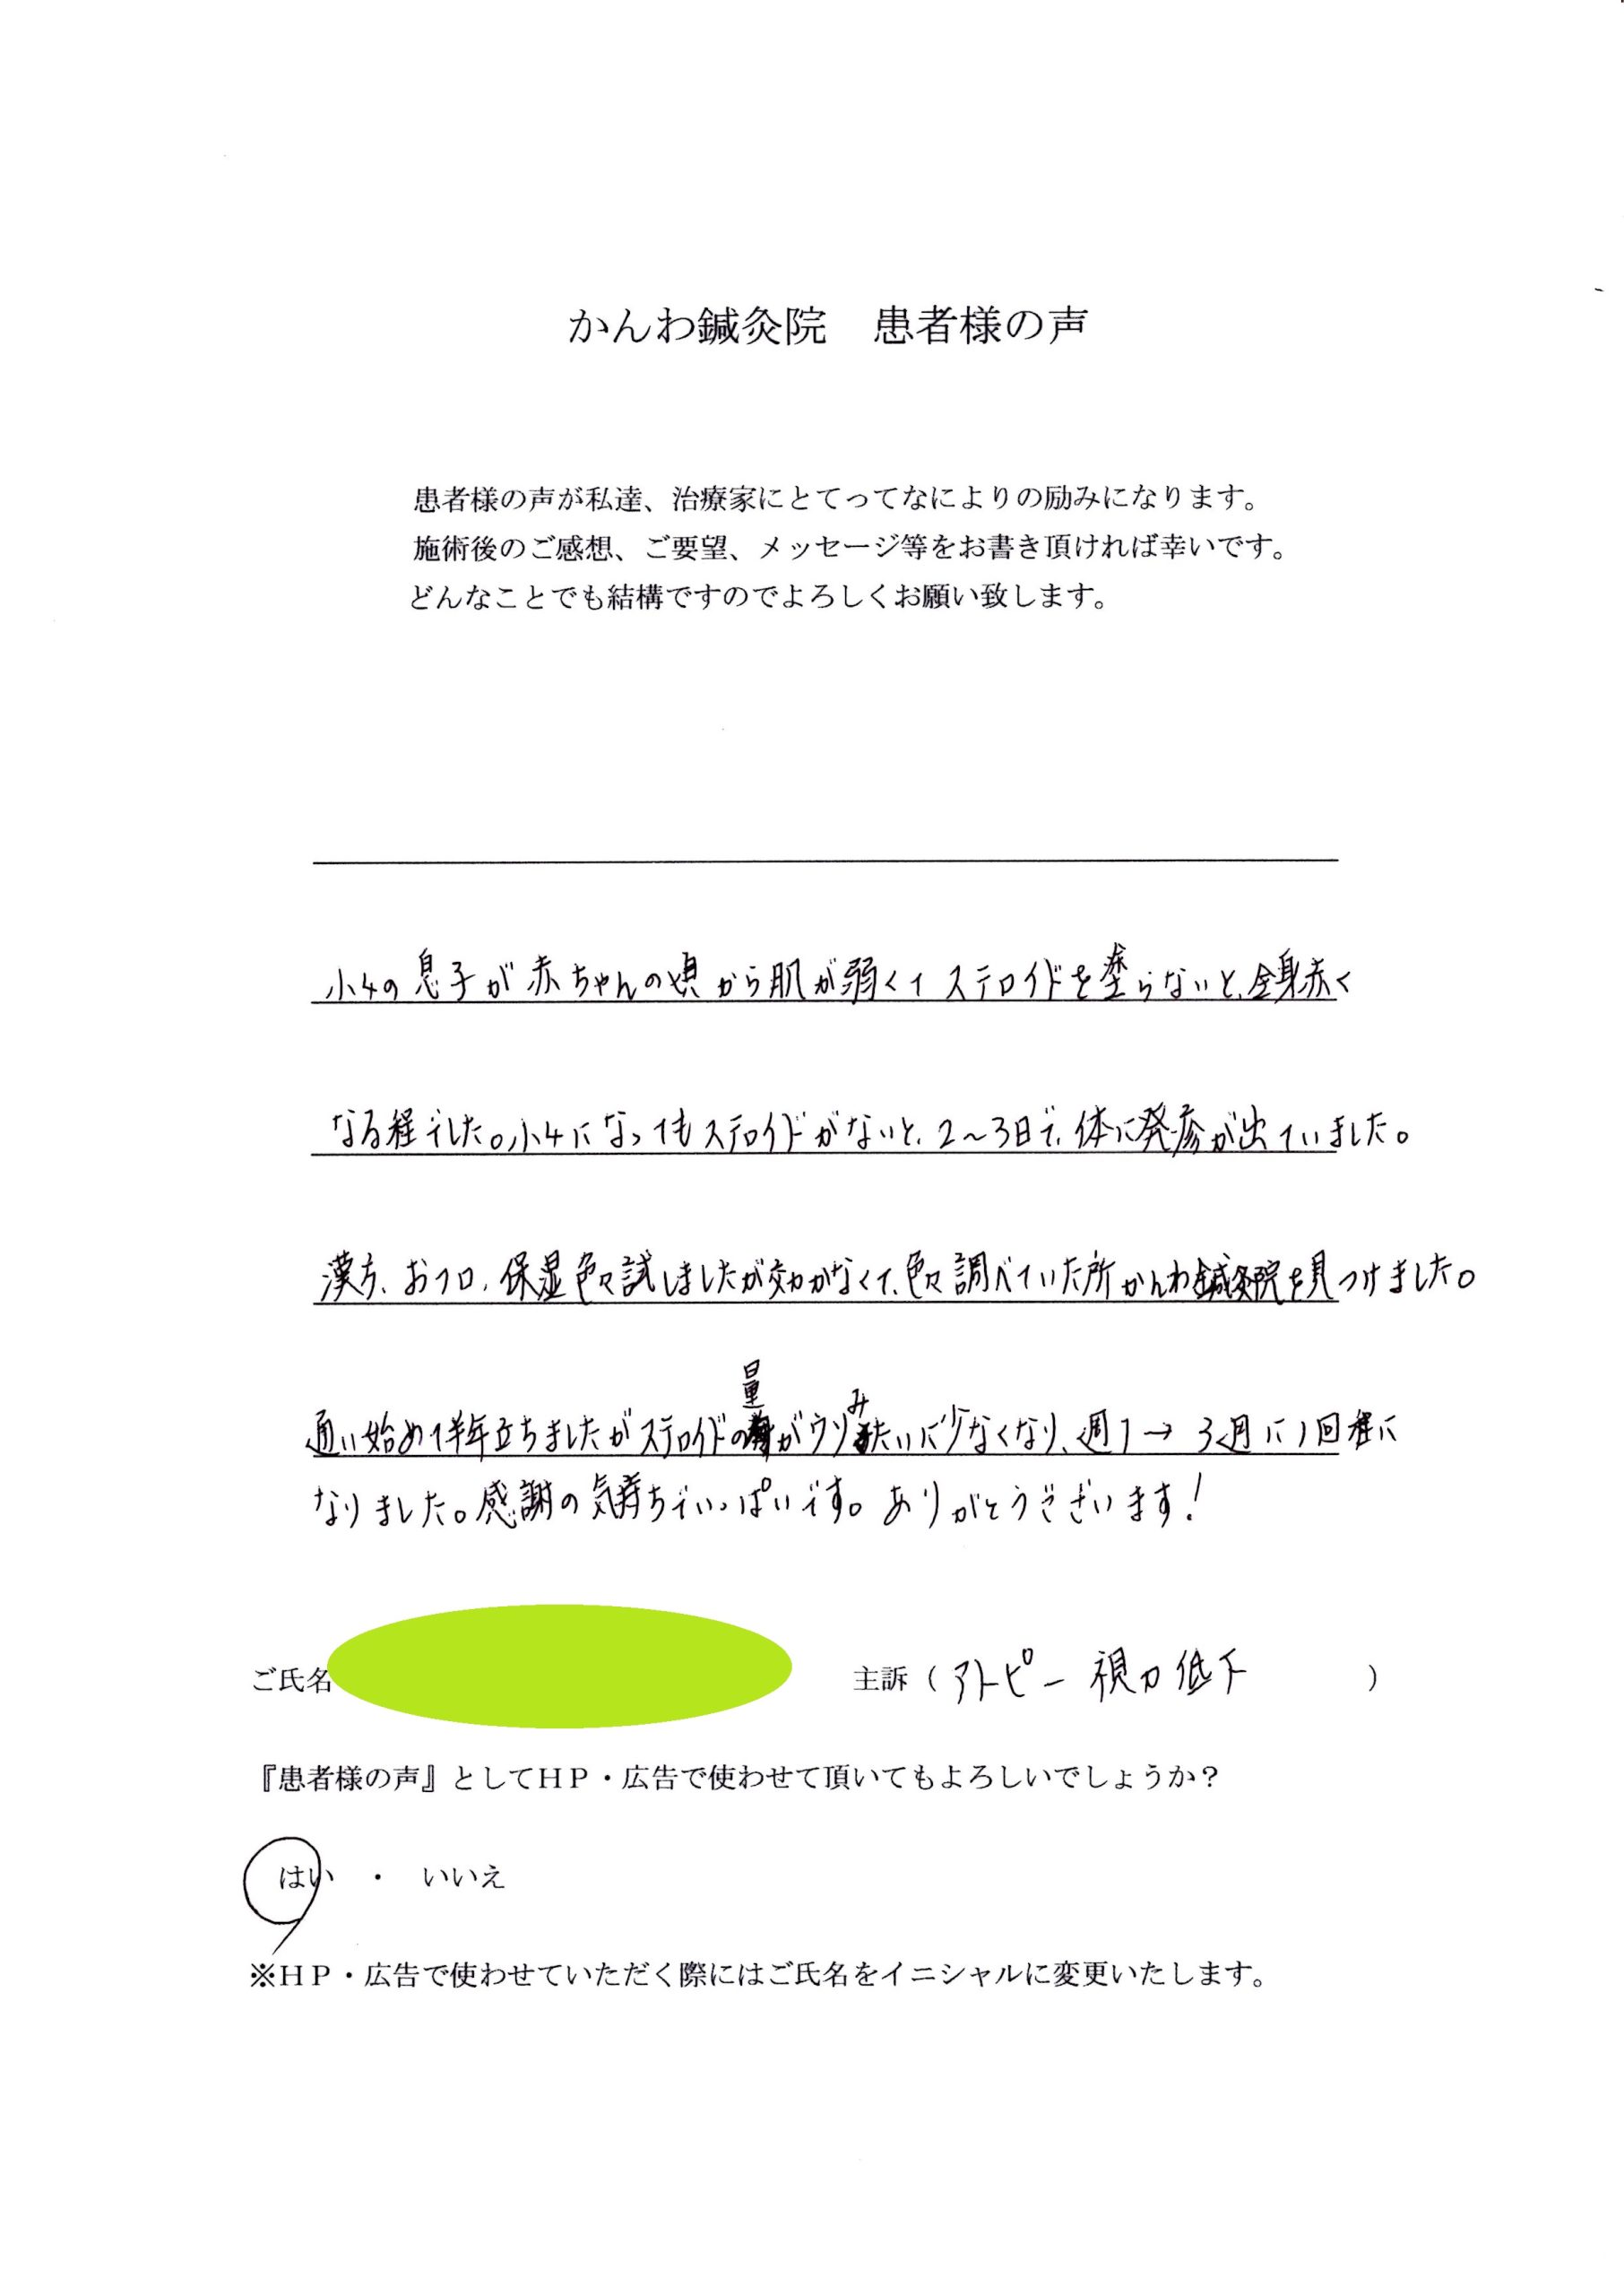 かんわ鍼灸院　患者様の声
患者様の声が私達、治療家にとてってなによりの励みになります。
施術後のご感想、ご要望、メッセージ等をお書き頂ければ幸いです。
どんなことでも結構ですのでよろしくお願い致します。
小4の息子が赤ちゃんの頃から肌が弱くてステロイドを塗らないと、全身赤く
なる程でした。小4になってもステロイドがないと、2～3日で、体に発疹が出ていました。
漢方、おフロ、保湿色々試しましたが効かなくて、色々調べていた所かんわ鍼灸院を見つけました。
通い始めて半年立ちましたがステロイドの量がウソみたいに少なくなり、週1→3週に1回程に
なりました。感謝の気持ちでいっぱいです。ありがとうございます！
ご氏名　主訴（アトピー 視力低下　）
『患者様の声』としてＨＰ・広告で使わせて頂いてもよろしいでしょうか？
はい　・　いいえ
※ＨＰ・広告で使わせていただく際にはご氏名をイニシャルに変更いたします。